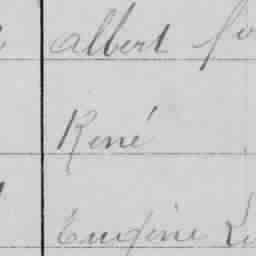 Albert
René
Eugène